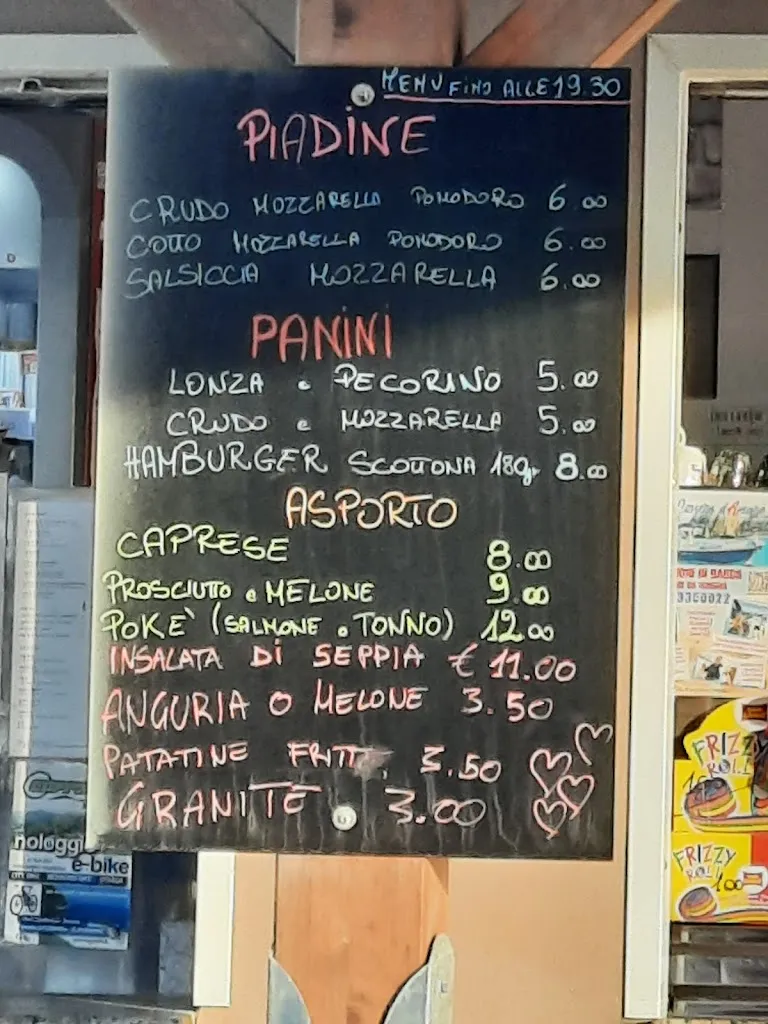 MENU FINO ALLE 19.30
PIADINE
CRUDO MOZZARELLA POMODORO 6.00
COTTO MOZZARELLA POMODORO 6.00
SALSICCIA MOZZARELLA 6.00
PANINI
LONZA e PECORINO 5.00
CRUDO e MOZZARELLA 5.00
HAMBURGER SCOTTONA 180gr 8.00
ASPORTO
CAPRESE 8.00
PROSCIUTTO e MELONE 9.00
POKE' (SALMONE o TONNO) 12.00
INSALATA DI SEPPIA € 11.00
ANGURIA O MELONE 3.50
PATATINE FRITT 3.50
GRANITE 3.00
nologgi
e-bike
FRIZZY
ROLL
FRIZZY
ROLL
1.00